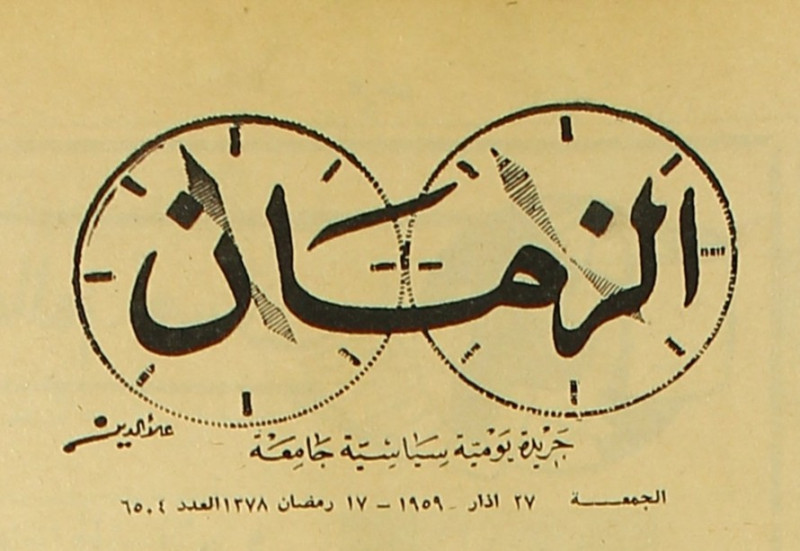 الزمان
جريدة يومية سياسية جامعة
علاء الدين
الجمعـــة ٢٧ اذار - ١٩٥٩ - ١٧ رمضان ١٣٧٨ العدد ٦٥٠٤